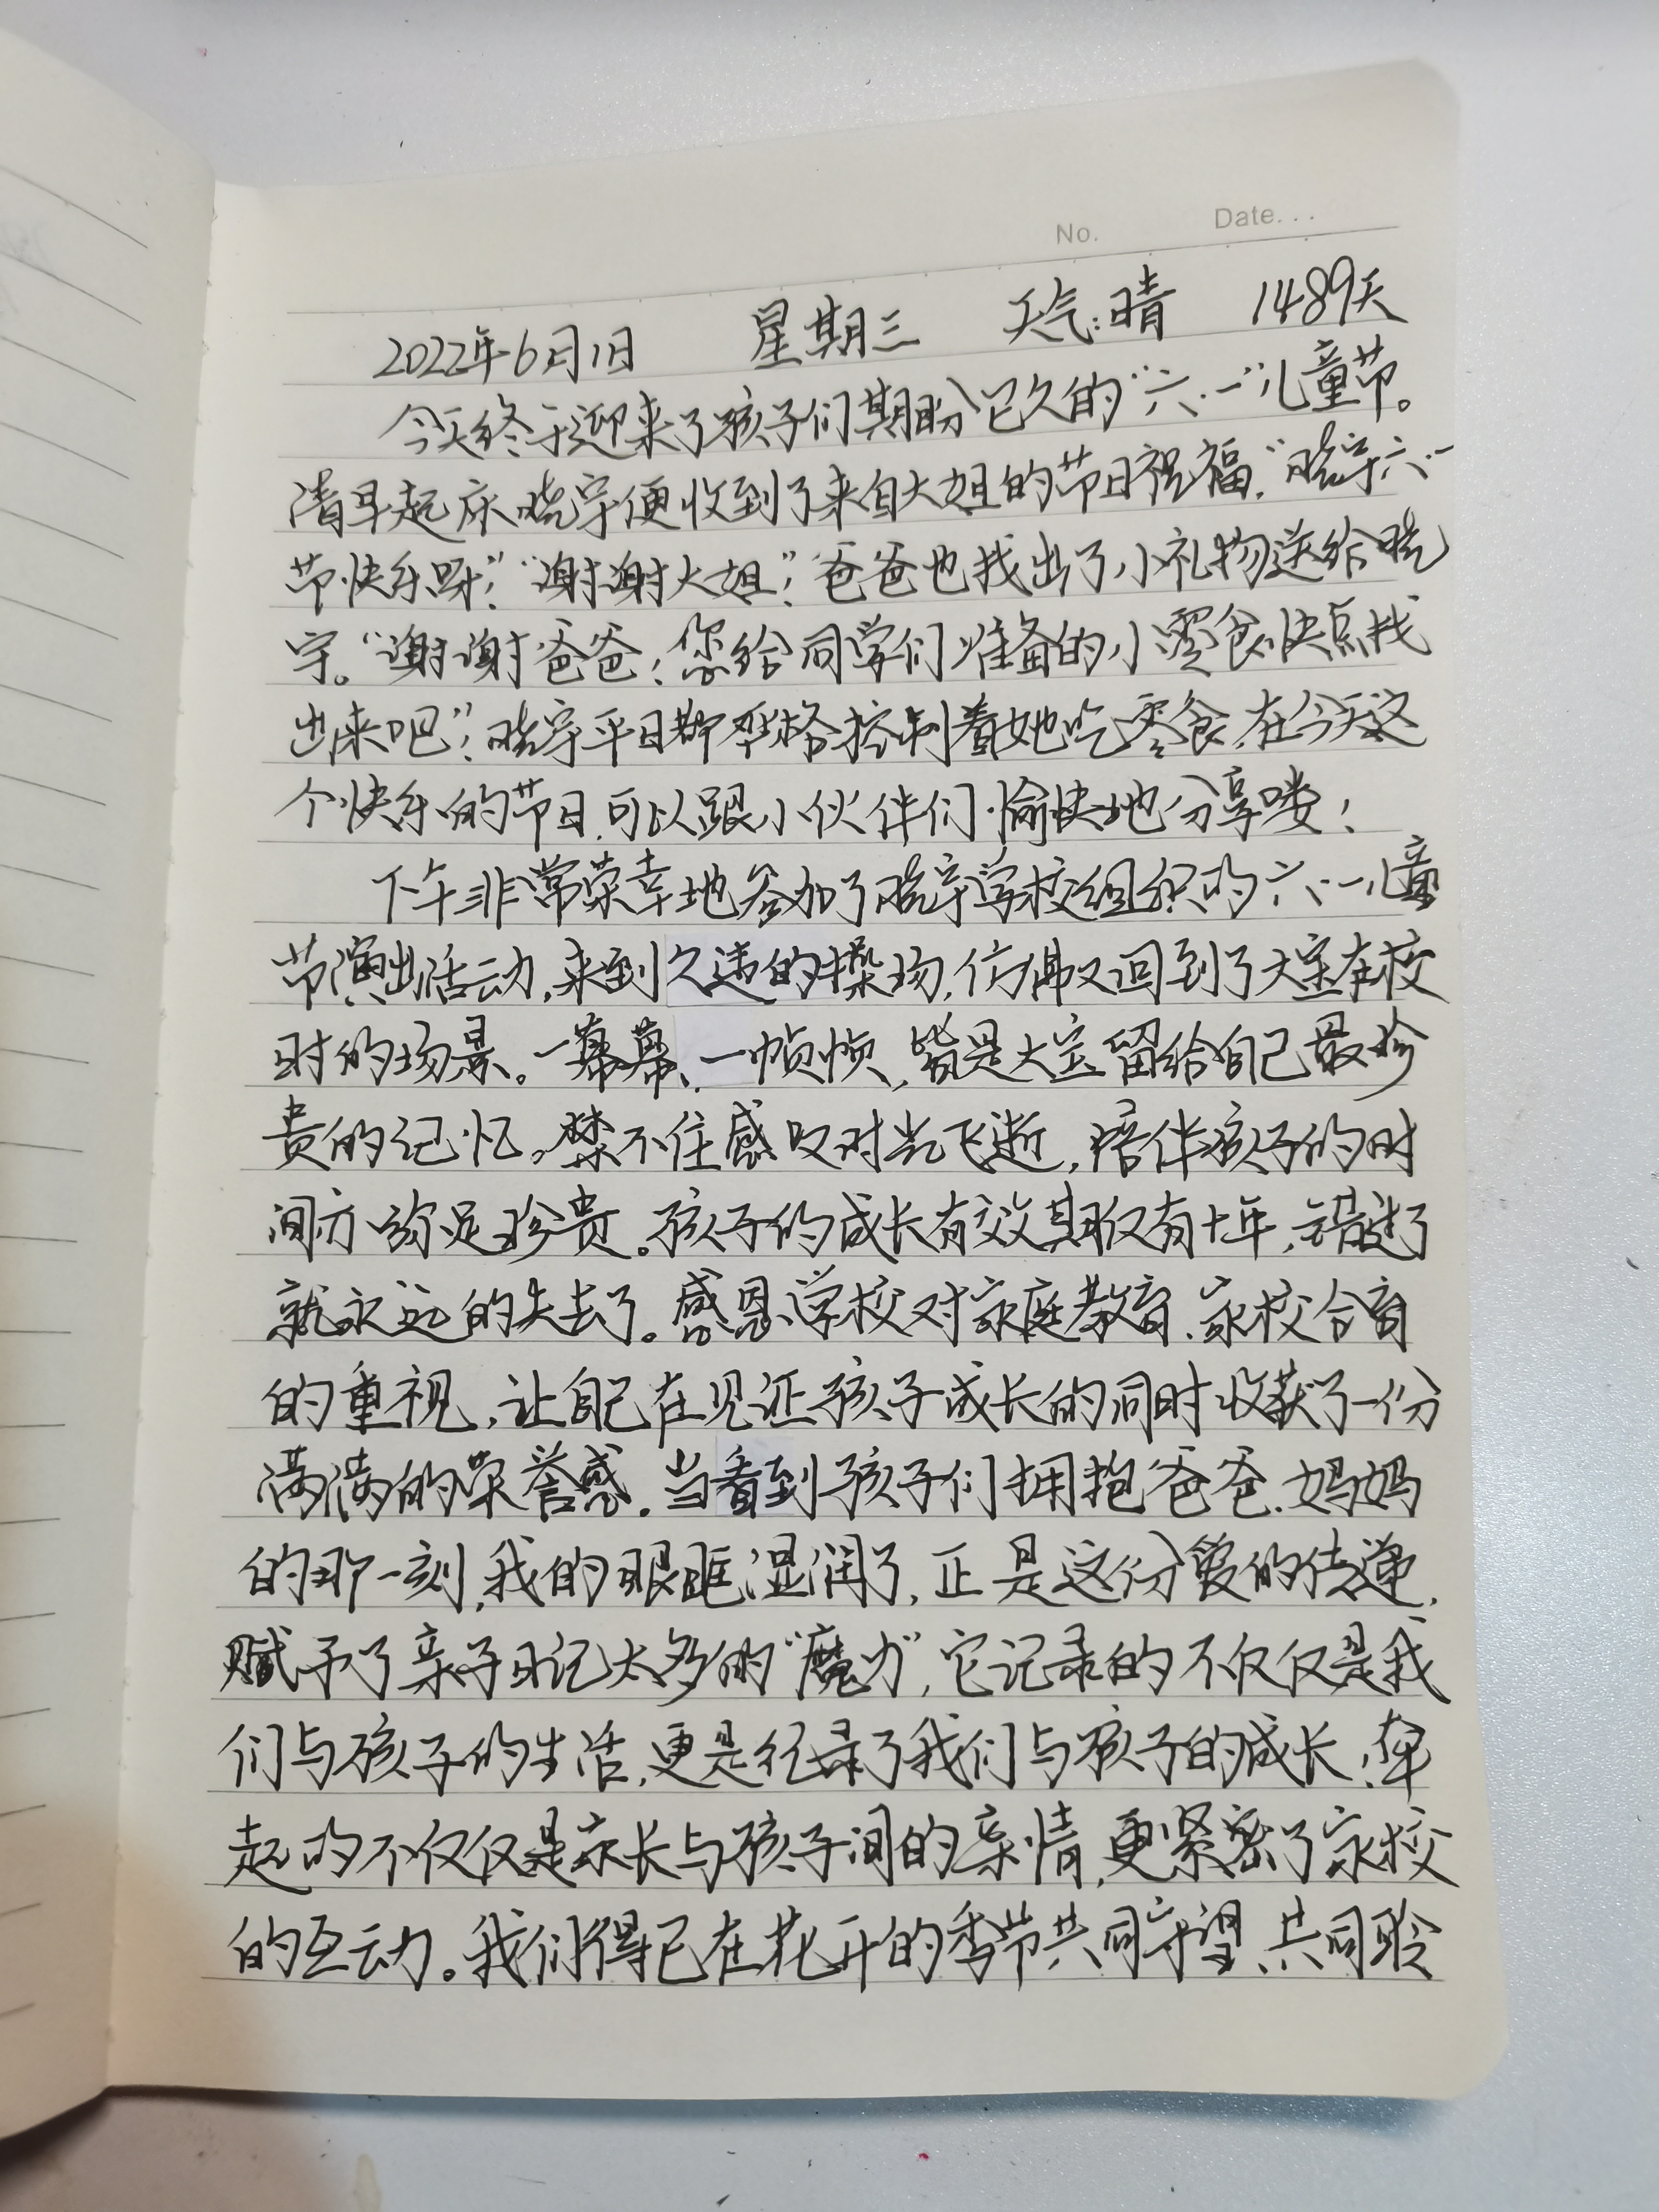 No. Date...
2022年6月1日 星期三 天气:晴 1489天
今天终于迎来了孩子们期盼已久的“六·一”儿童节。
清早起床晓宇便收到了来自大姐的节日祝福,“晓宇六·一
节快乐呀!”“谢谢大姐!”爸爸也找出了小礼物送给晓
宇。“谢谢爸爸!您给同学们准备的小零食快点找
出来吧!”晓宇平日都严格控制着她吃零食,在今天这
个快乐的节日,可以跟小伙伴们愉快地分享喽!
下午非常荣幸地参加了晓宇学校组织的六·一儿童
节演出活动,来到久违的操场,仿佛又回到了大宝在校
时的场景。一幕幕、一帧帧,皆是大宝留给自己最珍
贵的记忆。禁不住感叹时光飞逝,陪伴孩子的时
间亦弥足珍贵。孩子的成长有效期仅有十年,错过了
就永远的失去了。感恩学校对家庭教育、家校合育
的重视,让自己在见证孩子成长的同时收获了一份
满满的荣誉感。当看到孩子们拥抱爸爸、妈妈
的那一刻,我的眼眶湿润了,正是这份爱的传递,
赋予了亲子日记太多的“魔力”,它记录的不仅仅是我
们与孩子的生活,更是纪录了我们与孩子的成长;牵
起的不仅仅是家长与孩子间的亲情,更紧密了家校
的互动。我们得已在花开的季节共同守望、共同聆